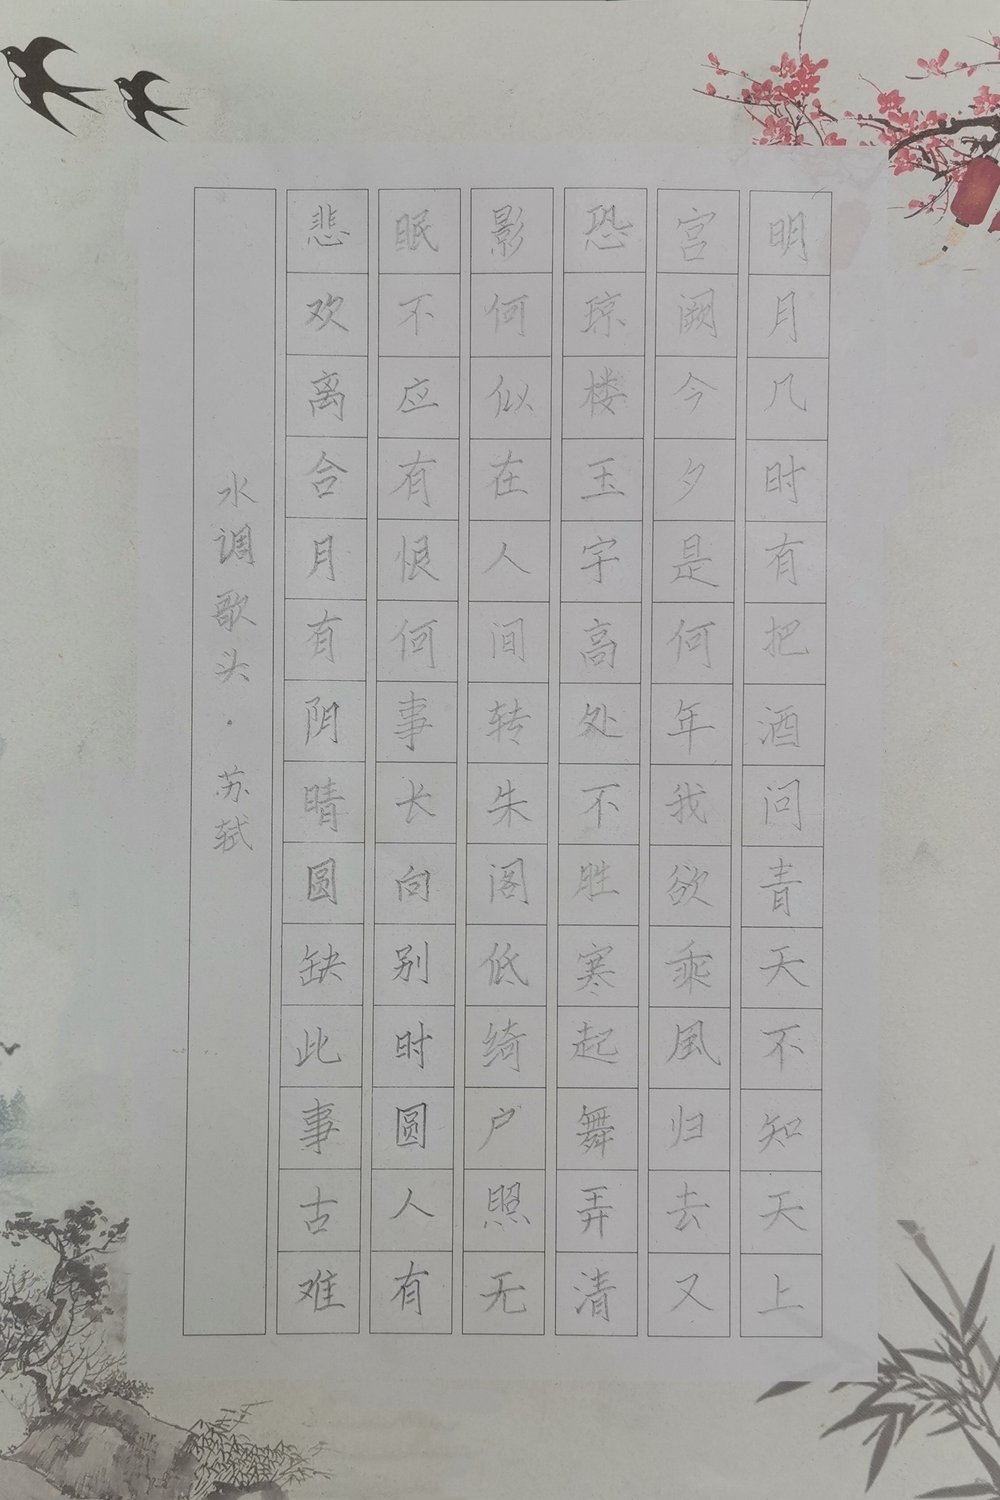 明月几时有把酒问青天不知天上
宫阙今夕是何年我欲乘風归去又
恐琼楼玉宇高处不胜寒起舞弄清
影何似在人间转朱阁低绮户照无
眠不应有恨何事长向别时圆人有
悲欢离合月有阴晴圆缺此事古难
水调歌头·苏轼